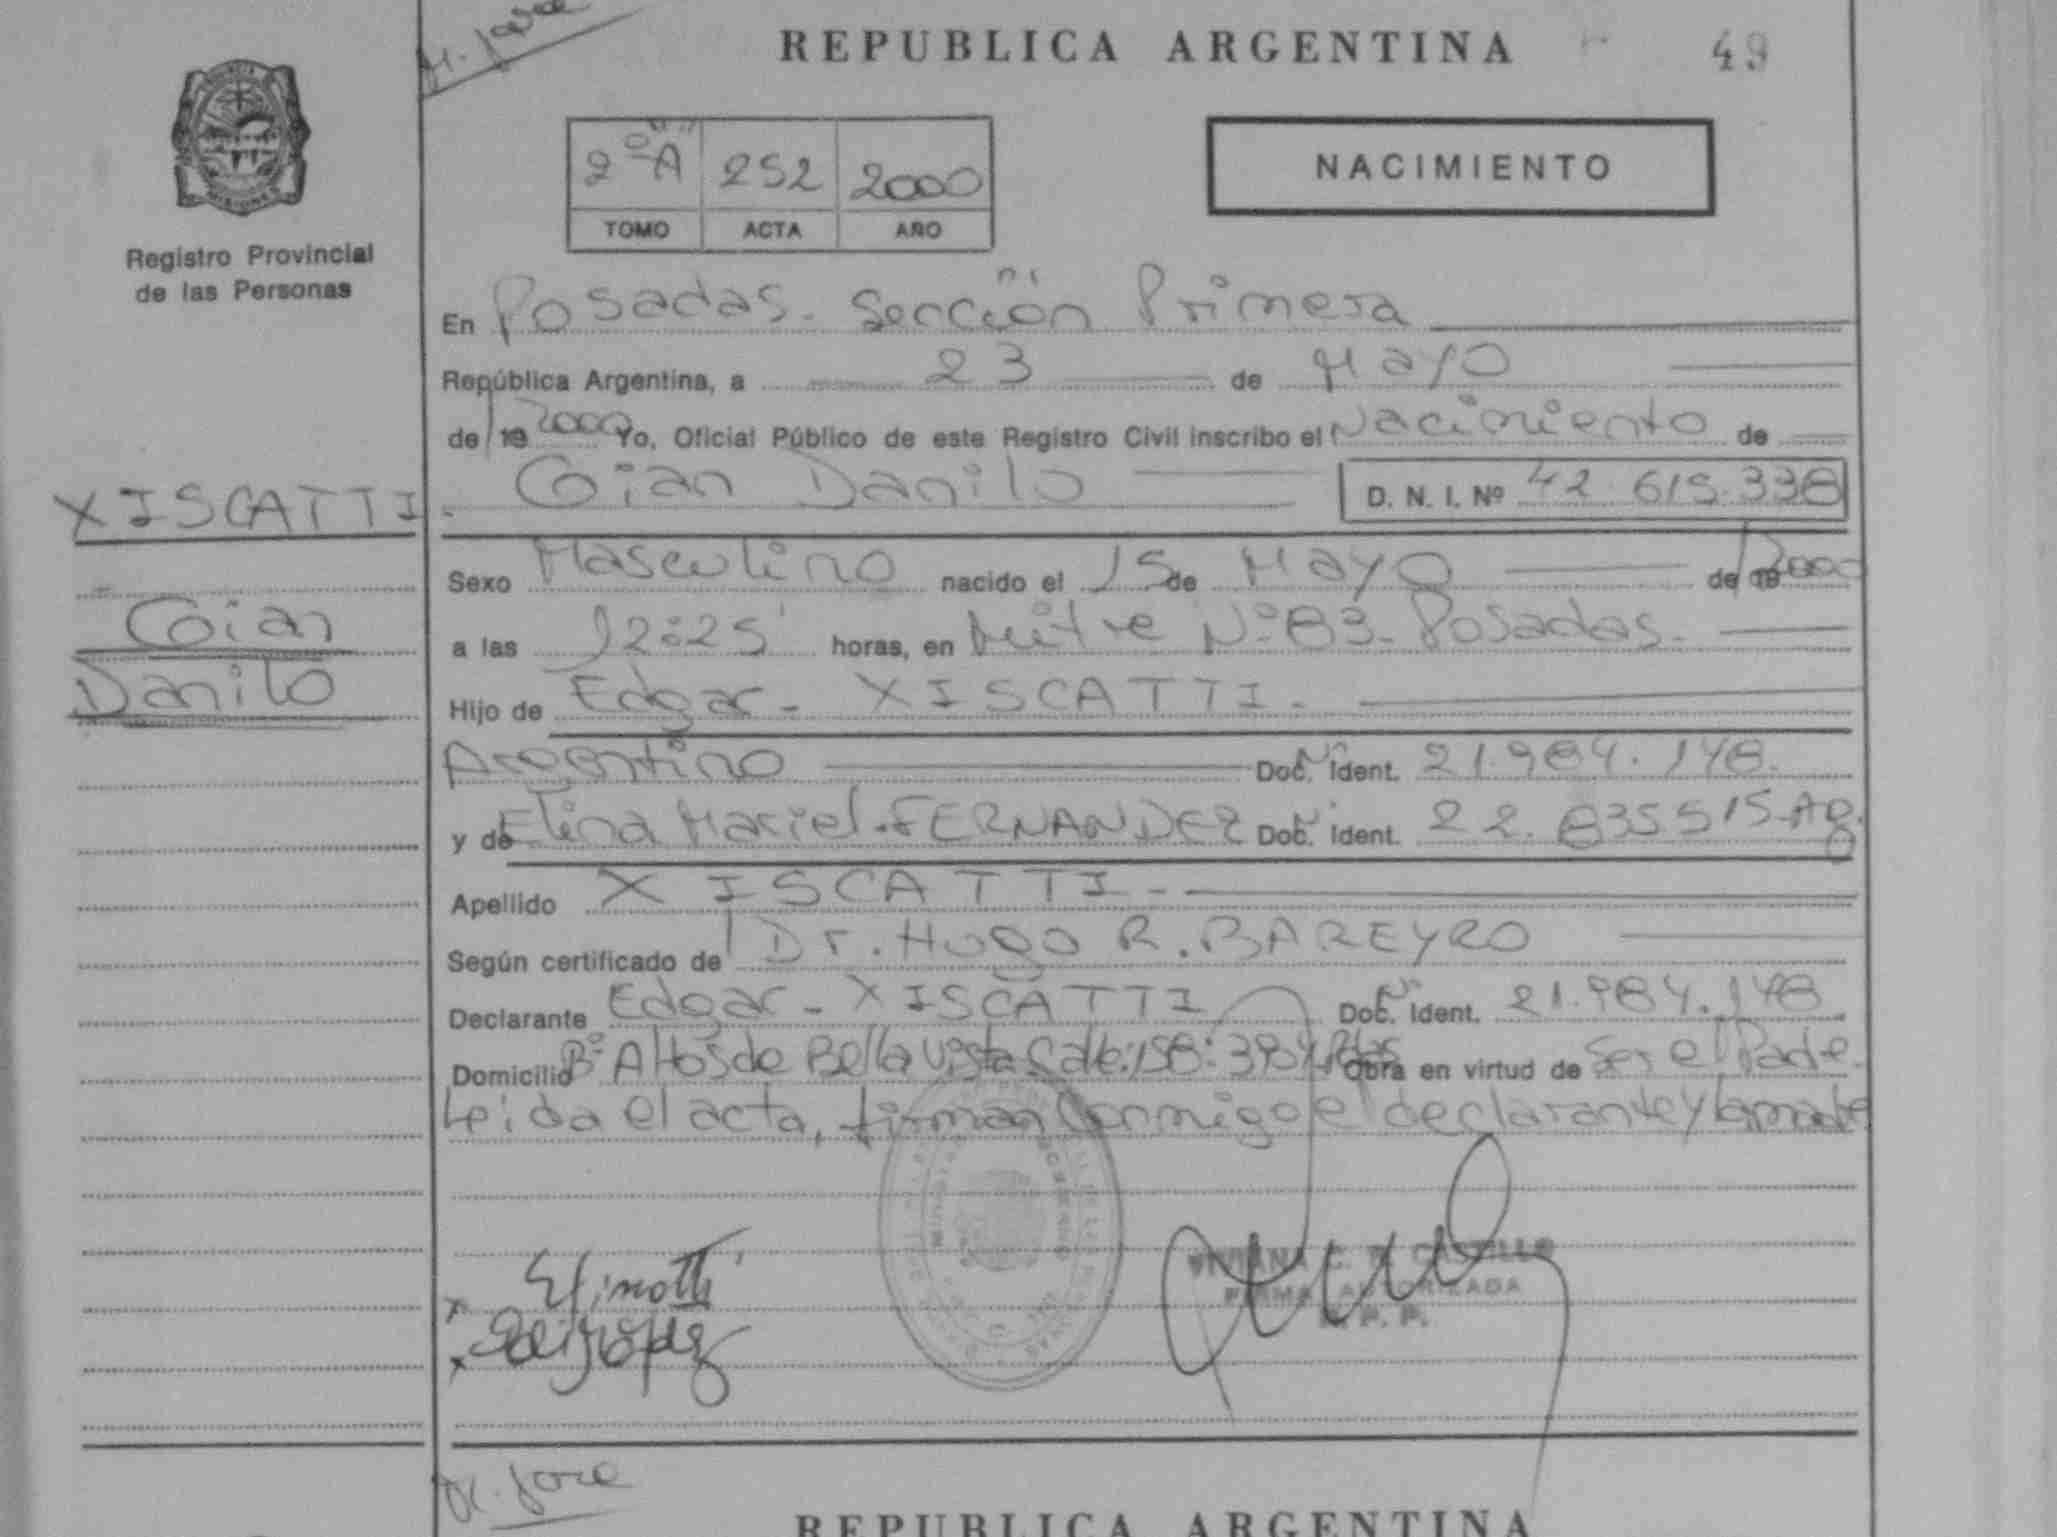 M. José
REPUBLICA ARGENTINA
49
2º "A" 252 2000
TOMO ACTA AÑO
NACIMIENTO
MISIONES
Registro Provincial
de las Personas
En Posadas. Sección Primera
República Argentina, a 23 de Mayo
de 19 2000 Yo, Oficial Público de este Registro Civil inscribo el Nacimiento de
Gian Danilo D. N. I. Nº 42.615.338
XISCATTI
Gian
Danilo
Sexo Masculino nacido el 15 de Mayo de 19 2000
a las 12:25 horas, en Mitre Nº 83- Posadas.
Hijo de Edgar - XISCATTI.
Argentino Doc. Ident. 21.984.148.
y de Elina Mariel. FERNANDEZ Doc. Ident. 22.835515-Ag.
Apellido XISCATTI.
Según certificado de Dr. Hugo R. BAREYRO
Declarante Edgar - XISCATTI Doc. Ident. 21.984.148
Domicilio Bº Altos de Bella Vista Calle: 158: Obra en virtud de Ser el Padre.
Leida el acta, firman Conmigo el declarante y la madre
VIVIANA C. R. CASTILLO
FIRMA AUTORIZADA
R. P. P.
M. José
REPUBLICA ARGENTINA